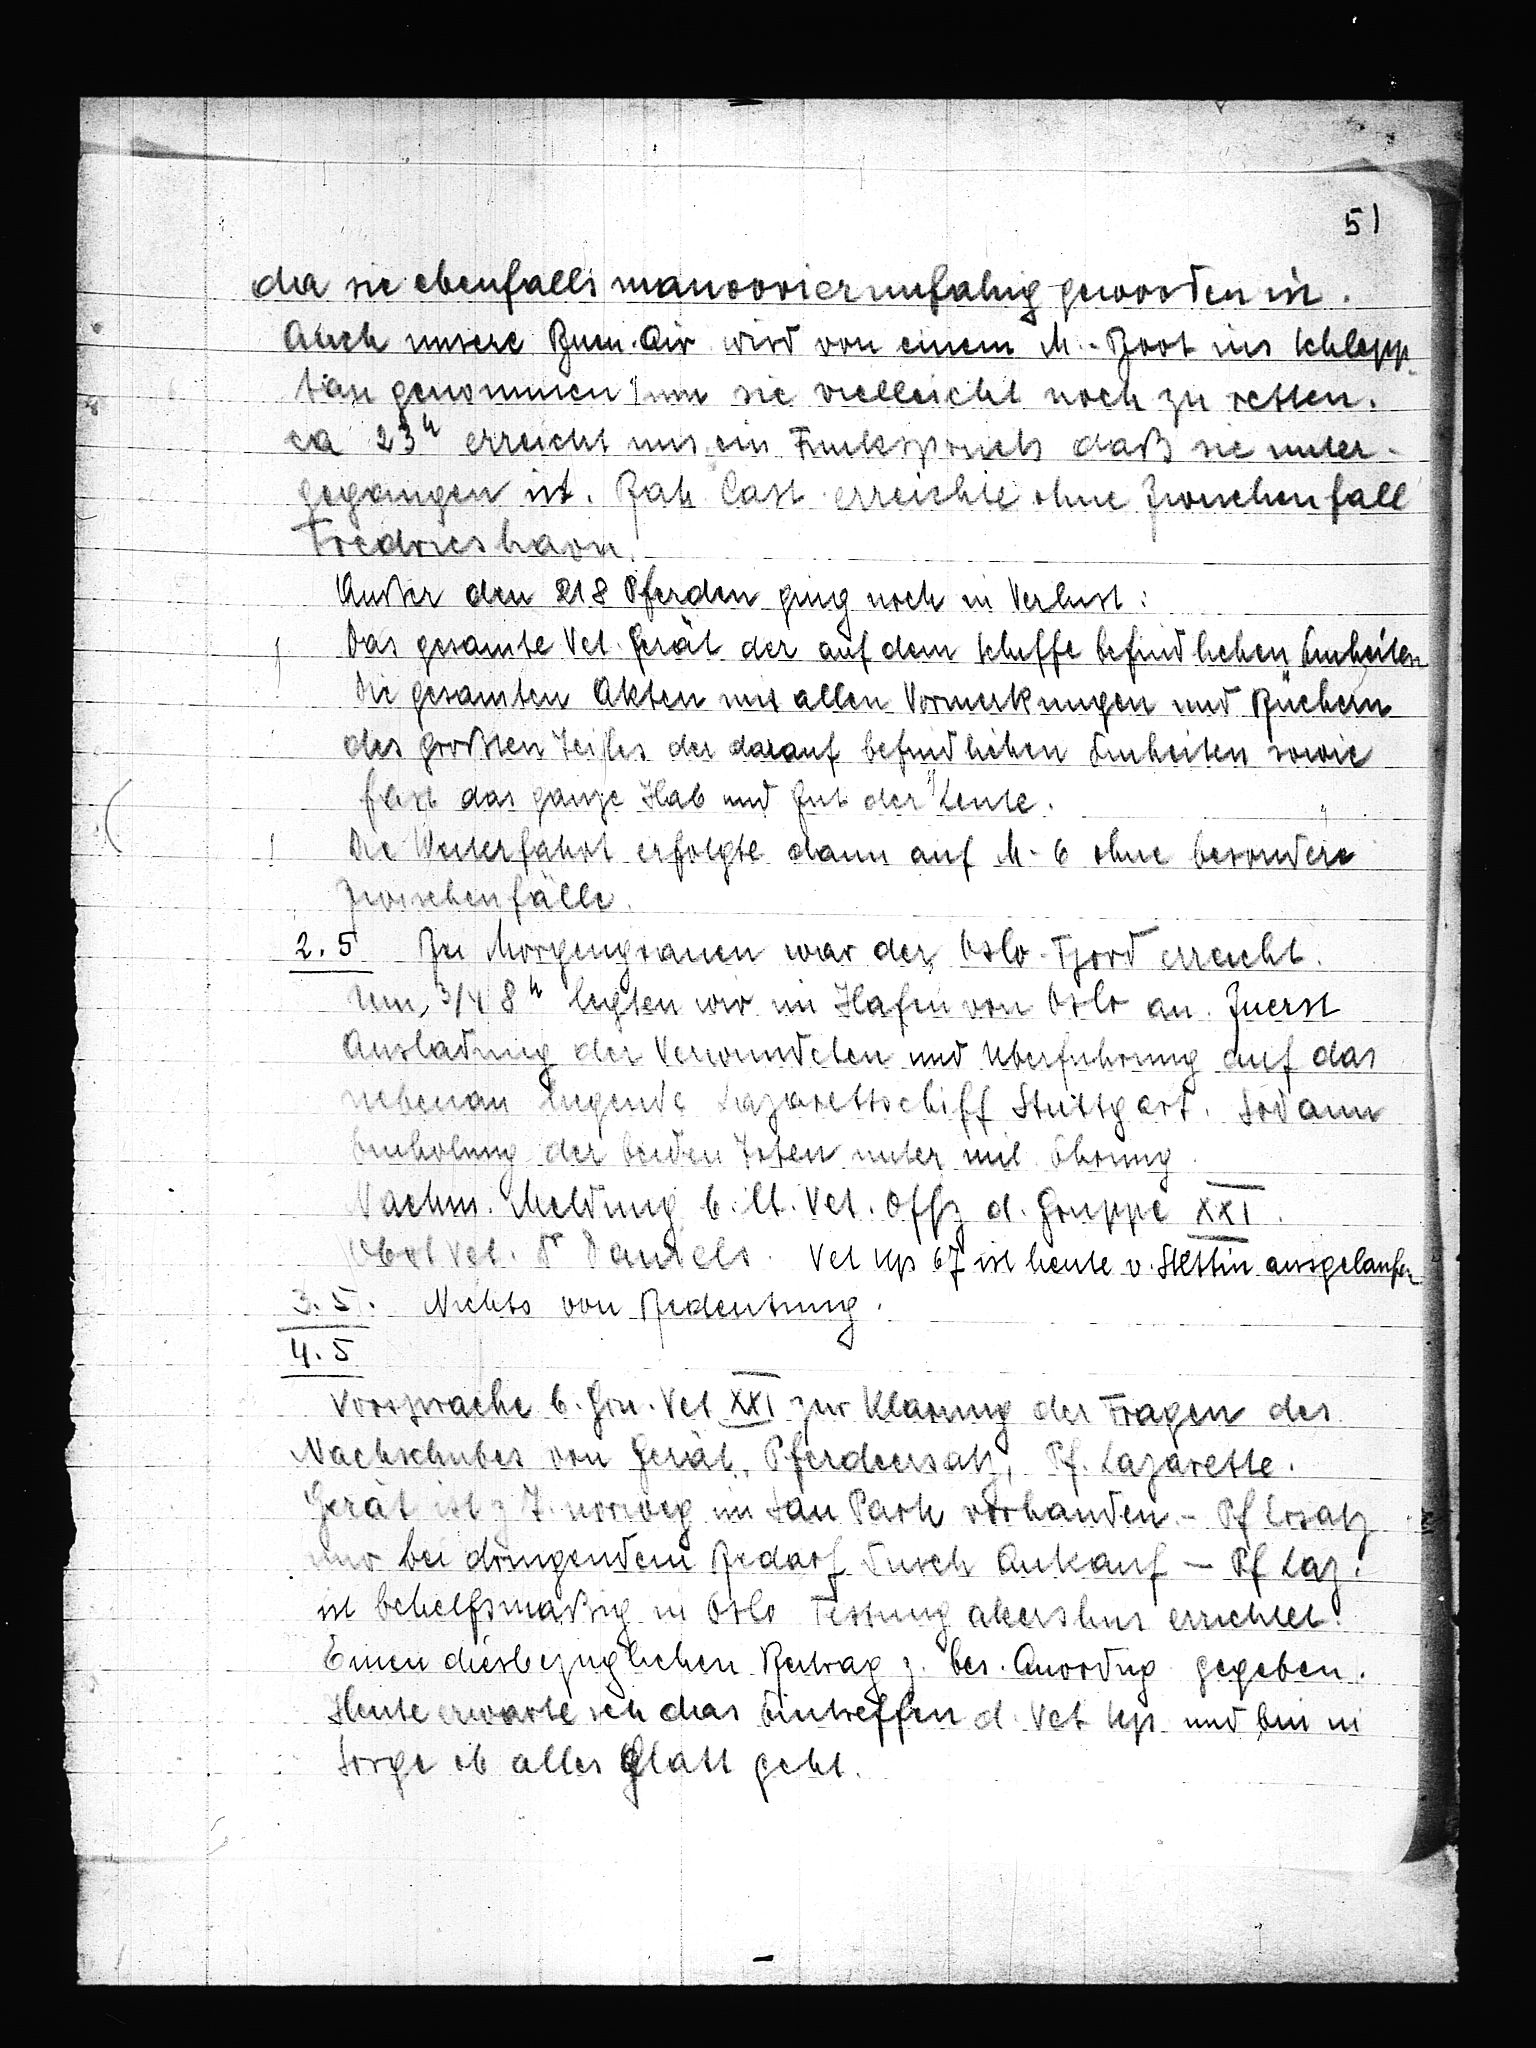 51
da sie ebenfalls manoovrierunfahig geworden ist.
Auch unsere Buen. Air wird von einem M.-Boot ins Schlepp-
tau genommen um sie vielleicht noch zu retten.
ca 23h erreicht uns ein Funkspruch daß sie unter-
gegangen ist. Bah. Cast erreichte ohne Zwischenfall
Fredrickshavn.
Außer den 218 Pferden ging noch in Verlust:
Das gesamte Vet. Gerät der auf dem Schiffe befindlichen Einheiten
Die gesamten Akten mit allen Vormerkungen und Büchern
des großten Teiles der darauf befindlichen Einheiten sowie
fast das ganze Hab und Gut der Leute.
Die Weiterfahrt erfolgte dann auf M-6 ohne besondere
Zwischenfälle.
2.5 Bei Morgengrauen war der Oslo-Fjord erreicht.
Um 3/4 8h legten wir im Hafen von Oslo an. Zuerst
Ausladung der Verwundeten und Uberfuhrung auf das
nebenan liegende Lazarettschiff Stuttgart. Sodann
Einholung der beiden Toten unter mil. Ehrung.
Nachm. Meldung b. lt. Vet. Offz d. Gruppe XXI.
Obstvet. Dr Daniels. Vet Kp 67 ist heute v. Stettin ausgelaufen
3.5. Nichts von Bedeutung.
4.5
Vorsprache b. Gru. Vet XXI zur Klarung der Fragen des
Nachschubes von Gerät, Pferdeersatz, Pf. Lazarette.
Gerät ist z. Z. norweg im San Park vorhanden. - Pf Ersatz
nur bei dringendem Bedarf durch Ankauf - Pf Laz.
ist behelfsmaßig in Oslo Festung akershus errichtet.
Einen diesbezuglichen Beitrag z. bes. Anordng gegeben.
Heute erwarte ich das Eintreffen d. Vet Kp und bin in
Sorge ob alles Glatt geht.